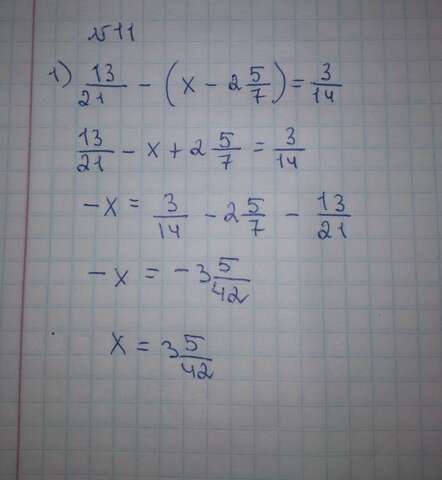 №11
1) 13/21 - (x - 2 5/7) = 3/14
13/21 - x + 2 5/7 = 3/14
-x = 3/14 - 2 5/7 - 13/21
-x = -3 5/42
x = 3 5/42